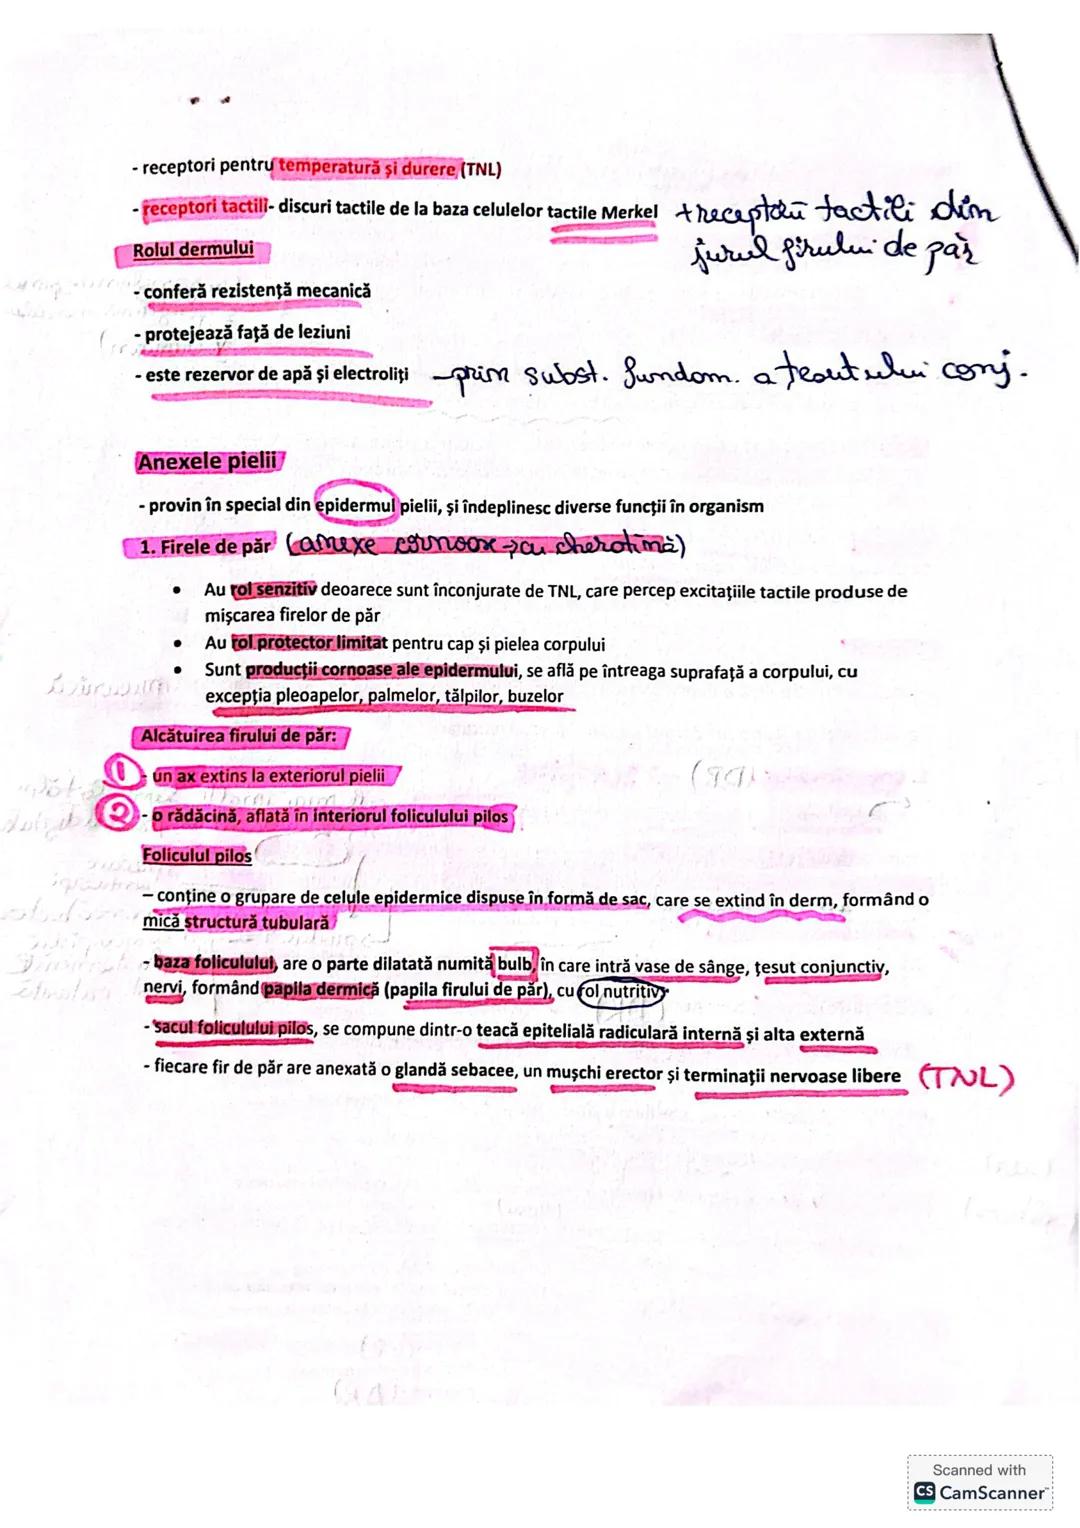 - receptori pentru temperatură și durere (TNL)
- receptori tactili- discuri tactile de la baza celulelor tactile Merkel + receptori tactili din
jurul firului de păr
Rolul dermului
- conferă rezistență mecanică
- protejează față de leziuni
- este rezervor de apă și electroliți – prin subst. fundam. a țesutului conj.
Anexele pielii
- provin în special din epidermul pielii, și îndeplinesc diverse funcții în organism
1. Firele de păr (anexe cornoase → cu cheratină)
• Au rol senzitiv deoarece sunt înconjurate de TNL, care percep excitațiile tactile produse de
mișcarea firelor de păr
• Au rol protector limitat pentru cap și pielea corpului
• Sunt producții cornoase ale epidermului, se află pe întreaga suprafață a corpului, cu
excepția pleoapelor, palmelor, tălpilor, buzelor
Alcătuirea firului de păr:
1 - un ax extins la exteriorul pielii
2 - o rădăcină, aflată în interiorul foliculului pilos
Foliculul pilos
– conține o grupare de celule epidermice dispuse în formă de sac, care se extind în derm, formând o
mică structură tubulară
- baza foliculului, are o parte dilatată numită bulb, în care intră vase de sânge, țesut conjunctiv,
nervi, formând papila dermică (papila firului de păr), cu rol nutritiv
- sacul foliculului pilos, se compune dintr-o teacă epitelială radiculară internă și alta externă
- fiecare fir de păr are anexată o glandă sebacee, un mușchi erector și terminații nervoase libere (TNL)
Scanned with
CS CamScanner